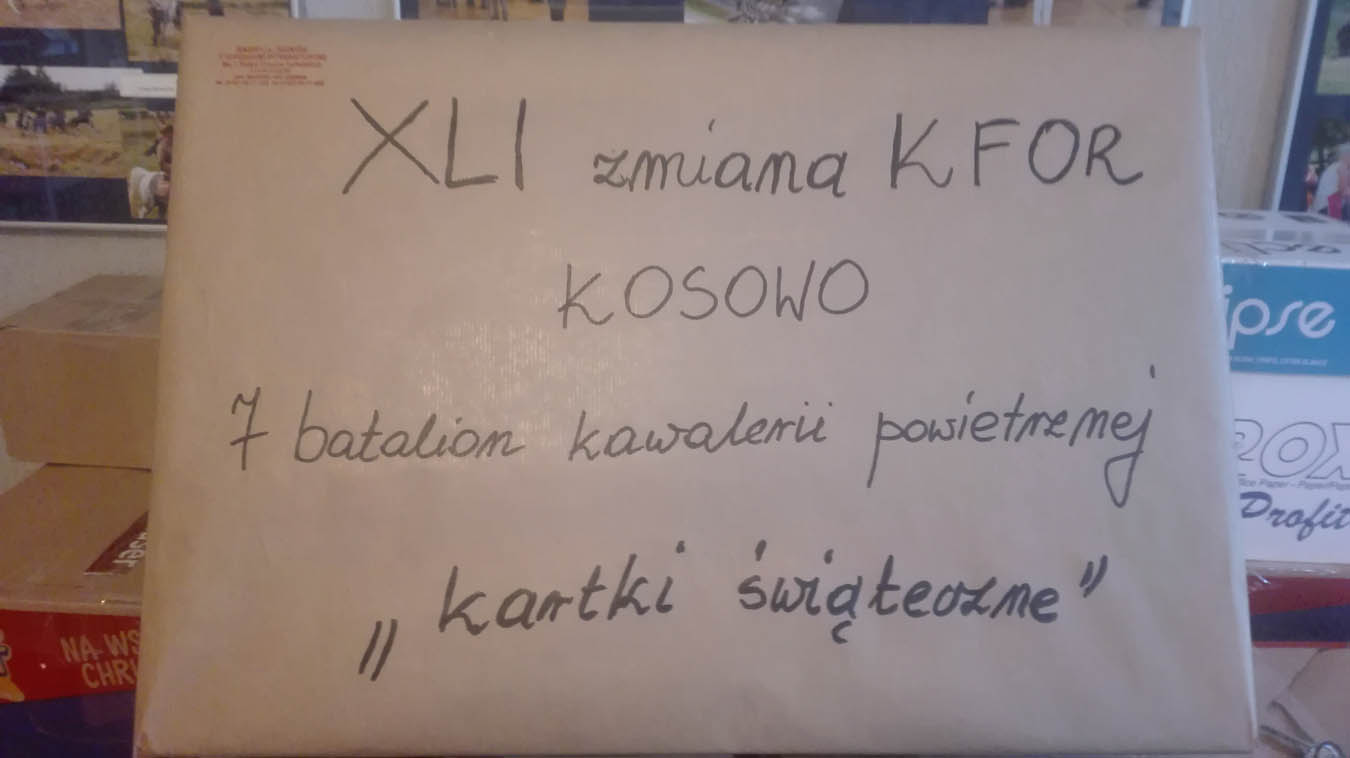 XLI zmiana KFOR
KOSOWO
7 batalion kawalerii powietrznej
„kartki świąteczne”
ipse
ROX
Profit
NA WS
CHRU